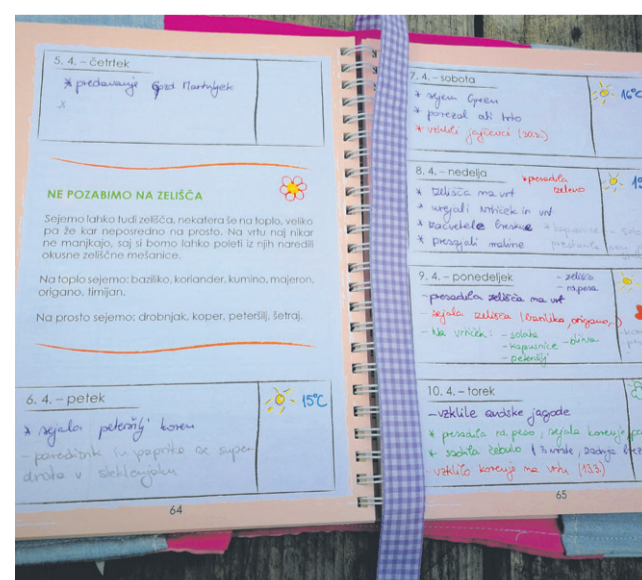 5. 4. – četrtek
* predavanje Gozd Martuljek
x
NE POZABIMO NA ZELIŠČA
Sejemo lahko tudi zelišča, nekatera še na toplo, veliko
pa že kar neposredno na prosto. Na vrtu naj nikar
ne manjkajo, saj si bomo lahko poleti iz njih naredili
okusne zeliščne mešanice.
Na toplo sejemo: baziliko, koriander, kumino, majeron,
origano, timijan.
Na prosto sejemo: drobnjak, koper, peteršilj, šetraj.
6. 4. – petek
15°C
* sejala peteršilj koren
- paradižnik in paprike se super
drota v steklenjaku
64
7. 4. – sobota
16°C
* sejem Green
* porezal ati trto
* vzklili jajčevci (20.2.)
8. 4. – nedelja
* presadila
zeleno
* zelišča na vrt
* urejali vrtiček in vrt
* zacvetele breskve
* presajali maline
9. 4. – ponedeljek
- zelišča
- ra. pesa
- presadila zelišča na vrt
- sejala zelišča (bazilika, origano,
- Na vrtiček: - solate
- kapusnice
- peteršilj
10. 4. – torek
- vzklile andske jagode
* presadila ra. peso, sejala korenje
* sadila čebulo
- vzklilo korenje na vrtu (13.3.)
65